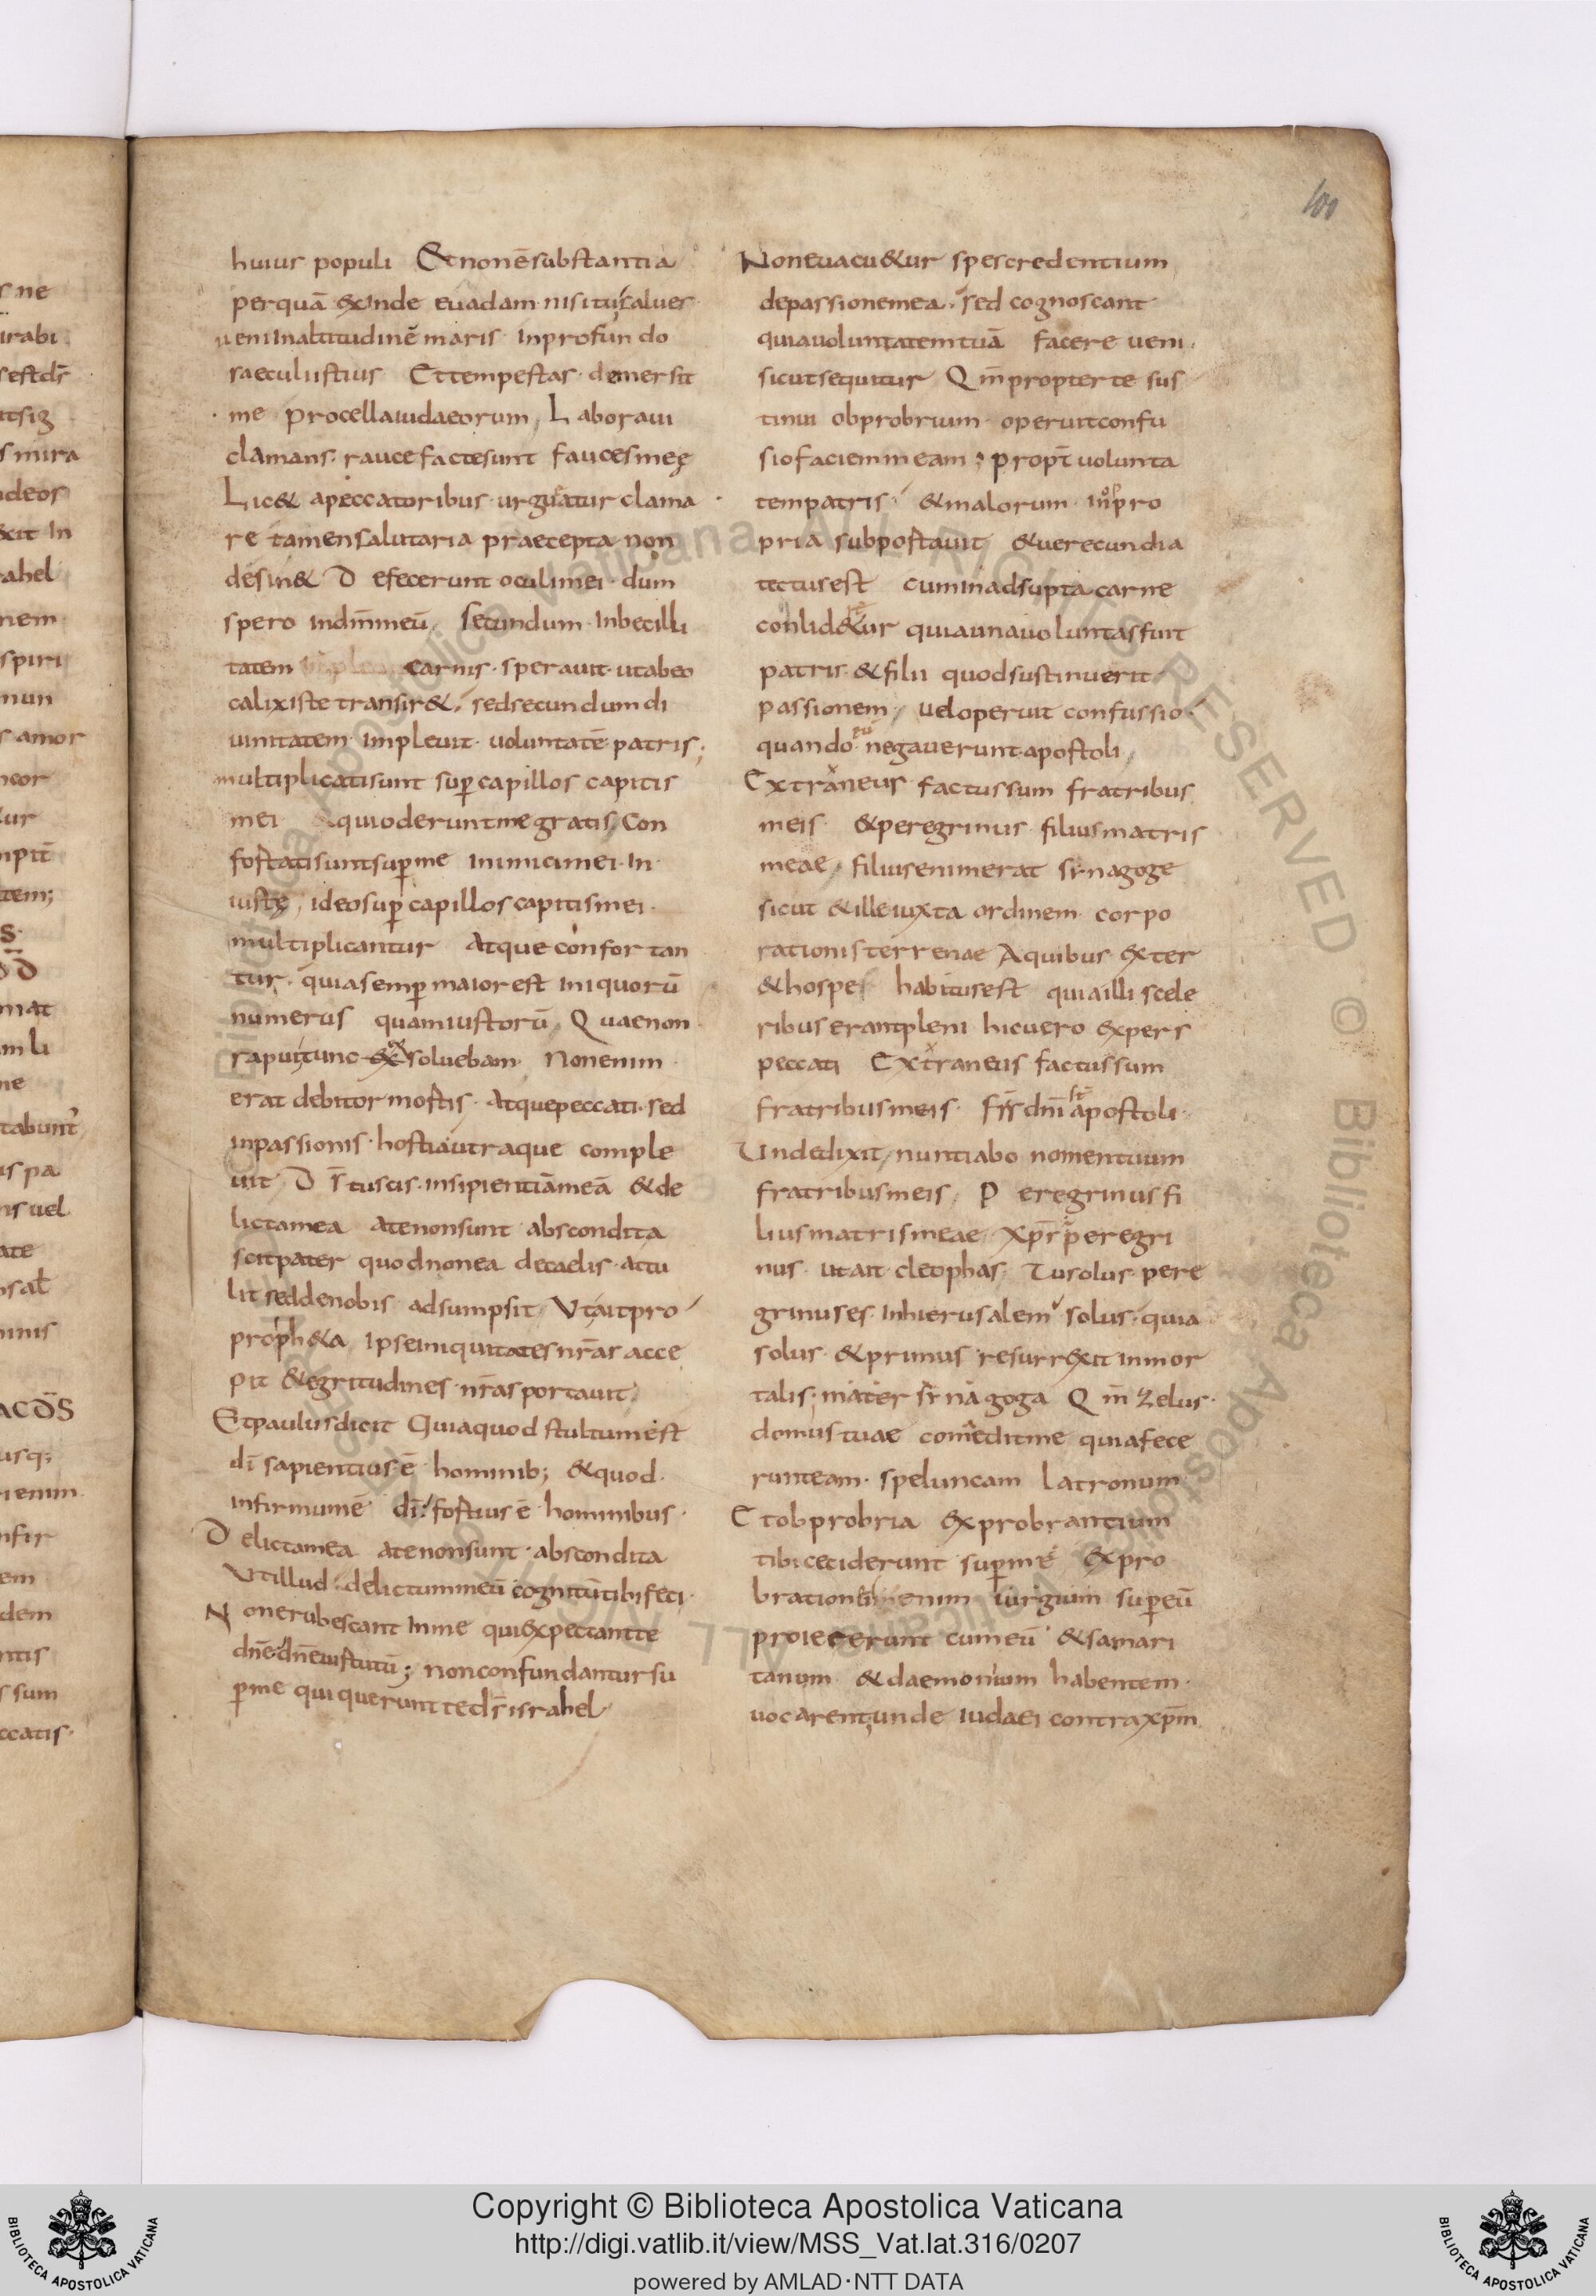 100
huius populi Et non ē substantia
per quā exinde euadam · nisi tu salues ·
ueni in altitudinē maris · in profundo
saeculi istius Et tempestas · demersit
me · procella iudaeorum, Laboraui
clamans · rauce facte sunt fauces meę
Lic& a peccatoribus · urguatur clama
re tamen salutaria praecepta non
desin& Defecerunt oculi mei · dum
spero in dm̄ meū, secundum · inbecilli
tatem carnis · sperauit · ut ab eo
calix iste transir&, sed secundum di
uinitatem · impleuit · uoluntatē · patris;
multiplicati sunt sup capillos capitis
mei qui oderunt me gratis, Con
fortati sunt sup me inimici mei · in
iustę, ideo sup capillos capitis mei ·
multiplicantur atque confortan
tur · quia semp maior est iniquorū
numerus quam iustorū, Quae non
rapui tunc exsoluebam · Non enim ·
erat debitor mortis · atque peccati · sed
in passionis · hostia utraque comple
uit Ds̄ tu scis · insipientiā meā & de
licta mea a te non sunt abscondita
scit pater quod non ea de caelis · attu
lit sed de nobis adsumpsit, Ut ait pro
proph&a ipse iniquitates nr̄as acce
pit & egritudines · nr̄as portauit,
Et paulus dicit Quia quod stultum est
dī sapientius ē hominib; & quod ·
infirmum ē dī · fortius ē hominibus ·
Delicta mea a te non sunt · abscondita
Ut illud · delictum meū cognitū tibi feci ·
Non erubescant in me qui expectant te
dn̄e dn̄e uirtutū; non confundantur su
p me qui querunt te ds̄ israhel
Non euacu&ur spes credentium
de passione mea · sed cognoscant
quia uoluntatem tuā facere ueni ·
sicut sequitur Qm̄ propter te sus
tinui obprobrium · operuit confu
sio faciem meam; propt̄ uolunta
tem patris · & malorum · inpro
pria subportauit & uerecundia
tectus est cum in adsupta carne
conlid&ur quia una uoluntas fuit
patris · & filii quod sustinuerit
passionem, uel operuit confussio ·
quando eū negauerunt apostoli,
Extraneus factus sum fratribus
meis & peregrinus · filiis matris
meae, filius enim erat synagoge
sicut & ille iuxta ordinem · corpo
rationis terrenae A quibus exter
& hospes habitus est quia illi scele
ribus erant pleni hic uero expers
peccati Extraneus factus sum
fratribus meis · frs̄ dn̄i apostoli ·
Unde dixit, nuntiabo nomen tuum
fratribus meis, Peregrinus fi
lius matris meae xps̄ peregri
nus · ut ait cleophas, Tu solus · pere
grinus es · in hierusalem solus · quia
solus · & primus resurrexit in mor
talis · mater synagoga Qm̄ zelus ·
domus tuae comedit me quia fece
runt eam · speluncam latronum
Et obprobria exprobrantium
tibi ceciderunt sup me expro
brationē enim uirgium sup eū
proiecerunt cum eū & samari
tanum & daemonium habentem ·
uocarent, unde iudaei contra xp̄m
Copyright © Biblioteca Apostolica Vaticana
http://digi.vatlib.it/view/MSS_Vat.lat.316/0207
powered by AMLAD·NTT DATA